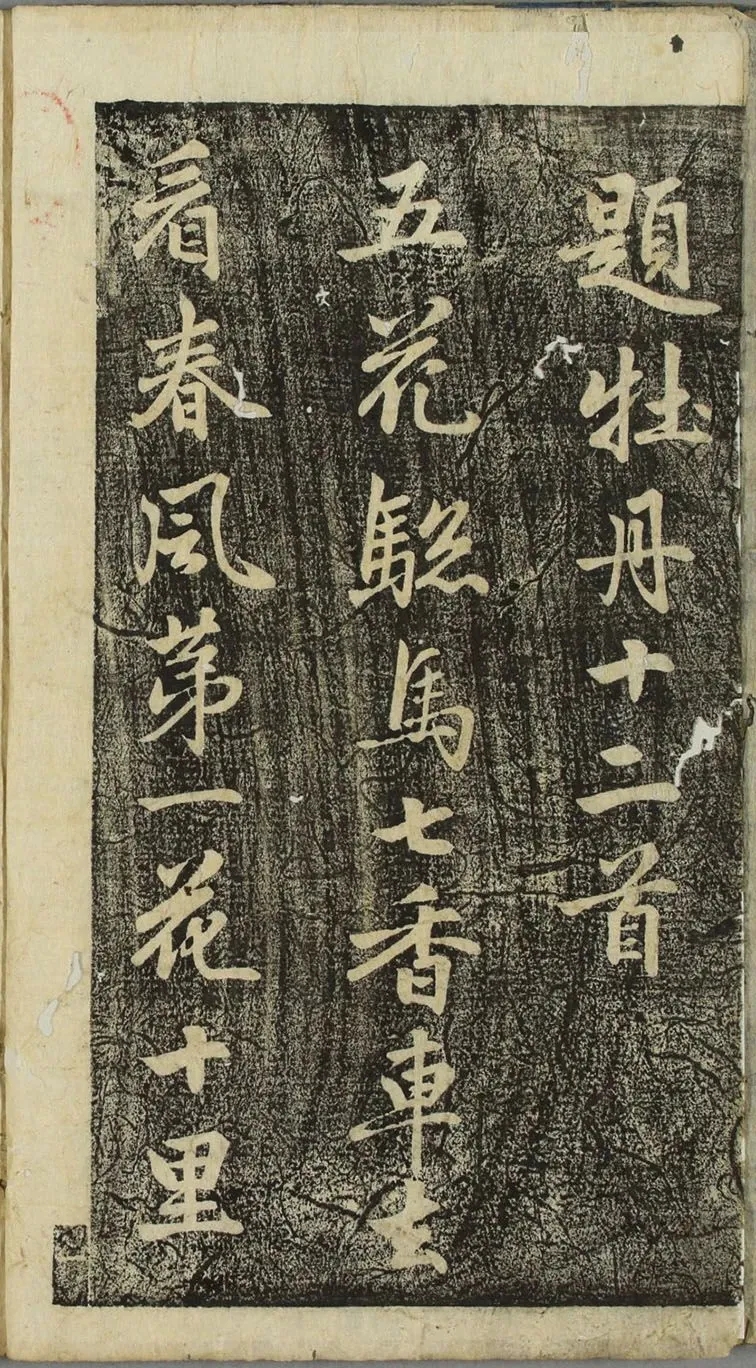 題牡丹十二首
五花驄馬七香車去
看春風第一花十里